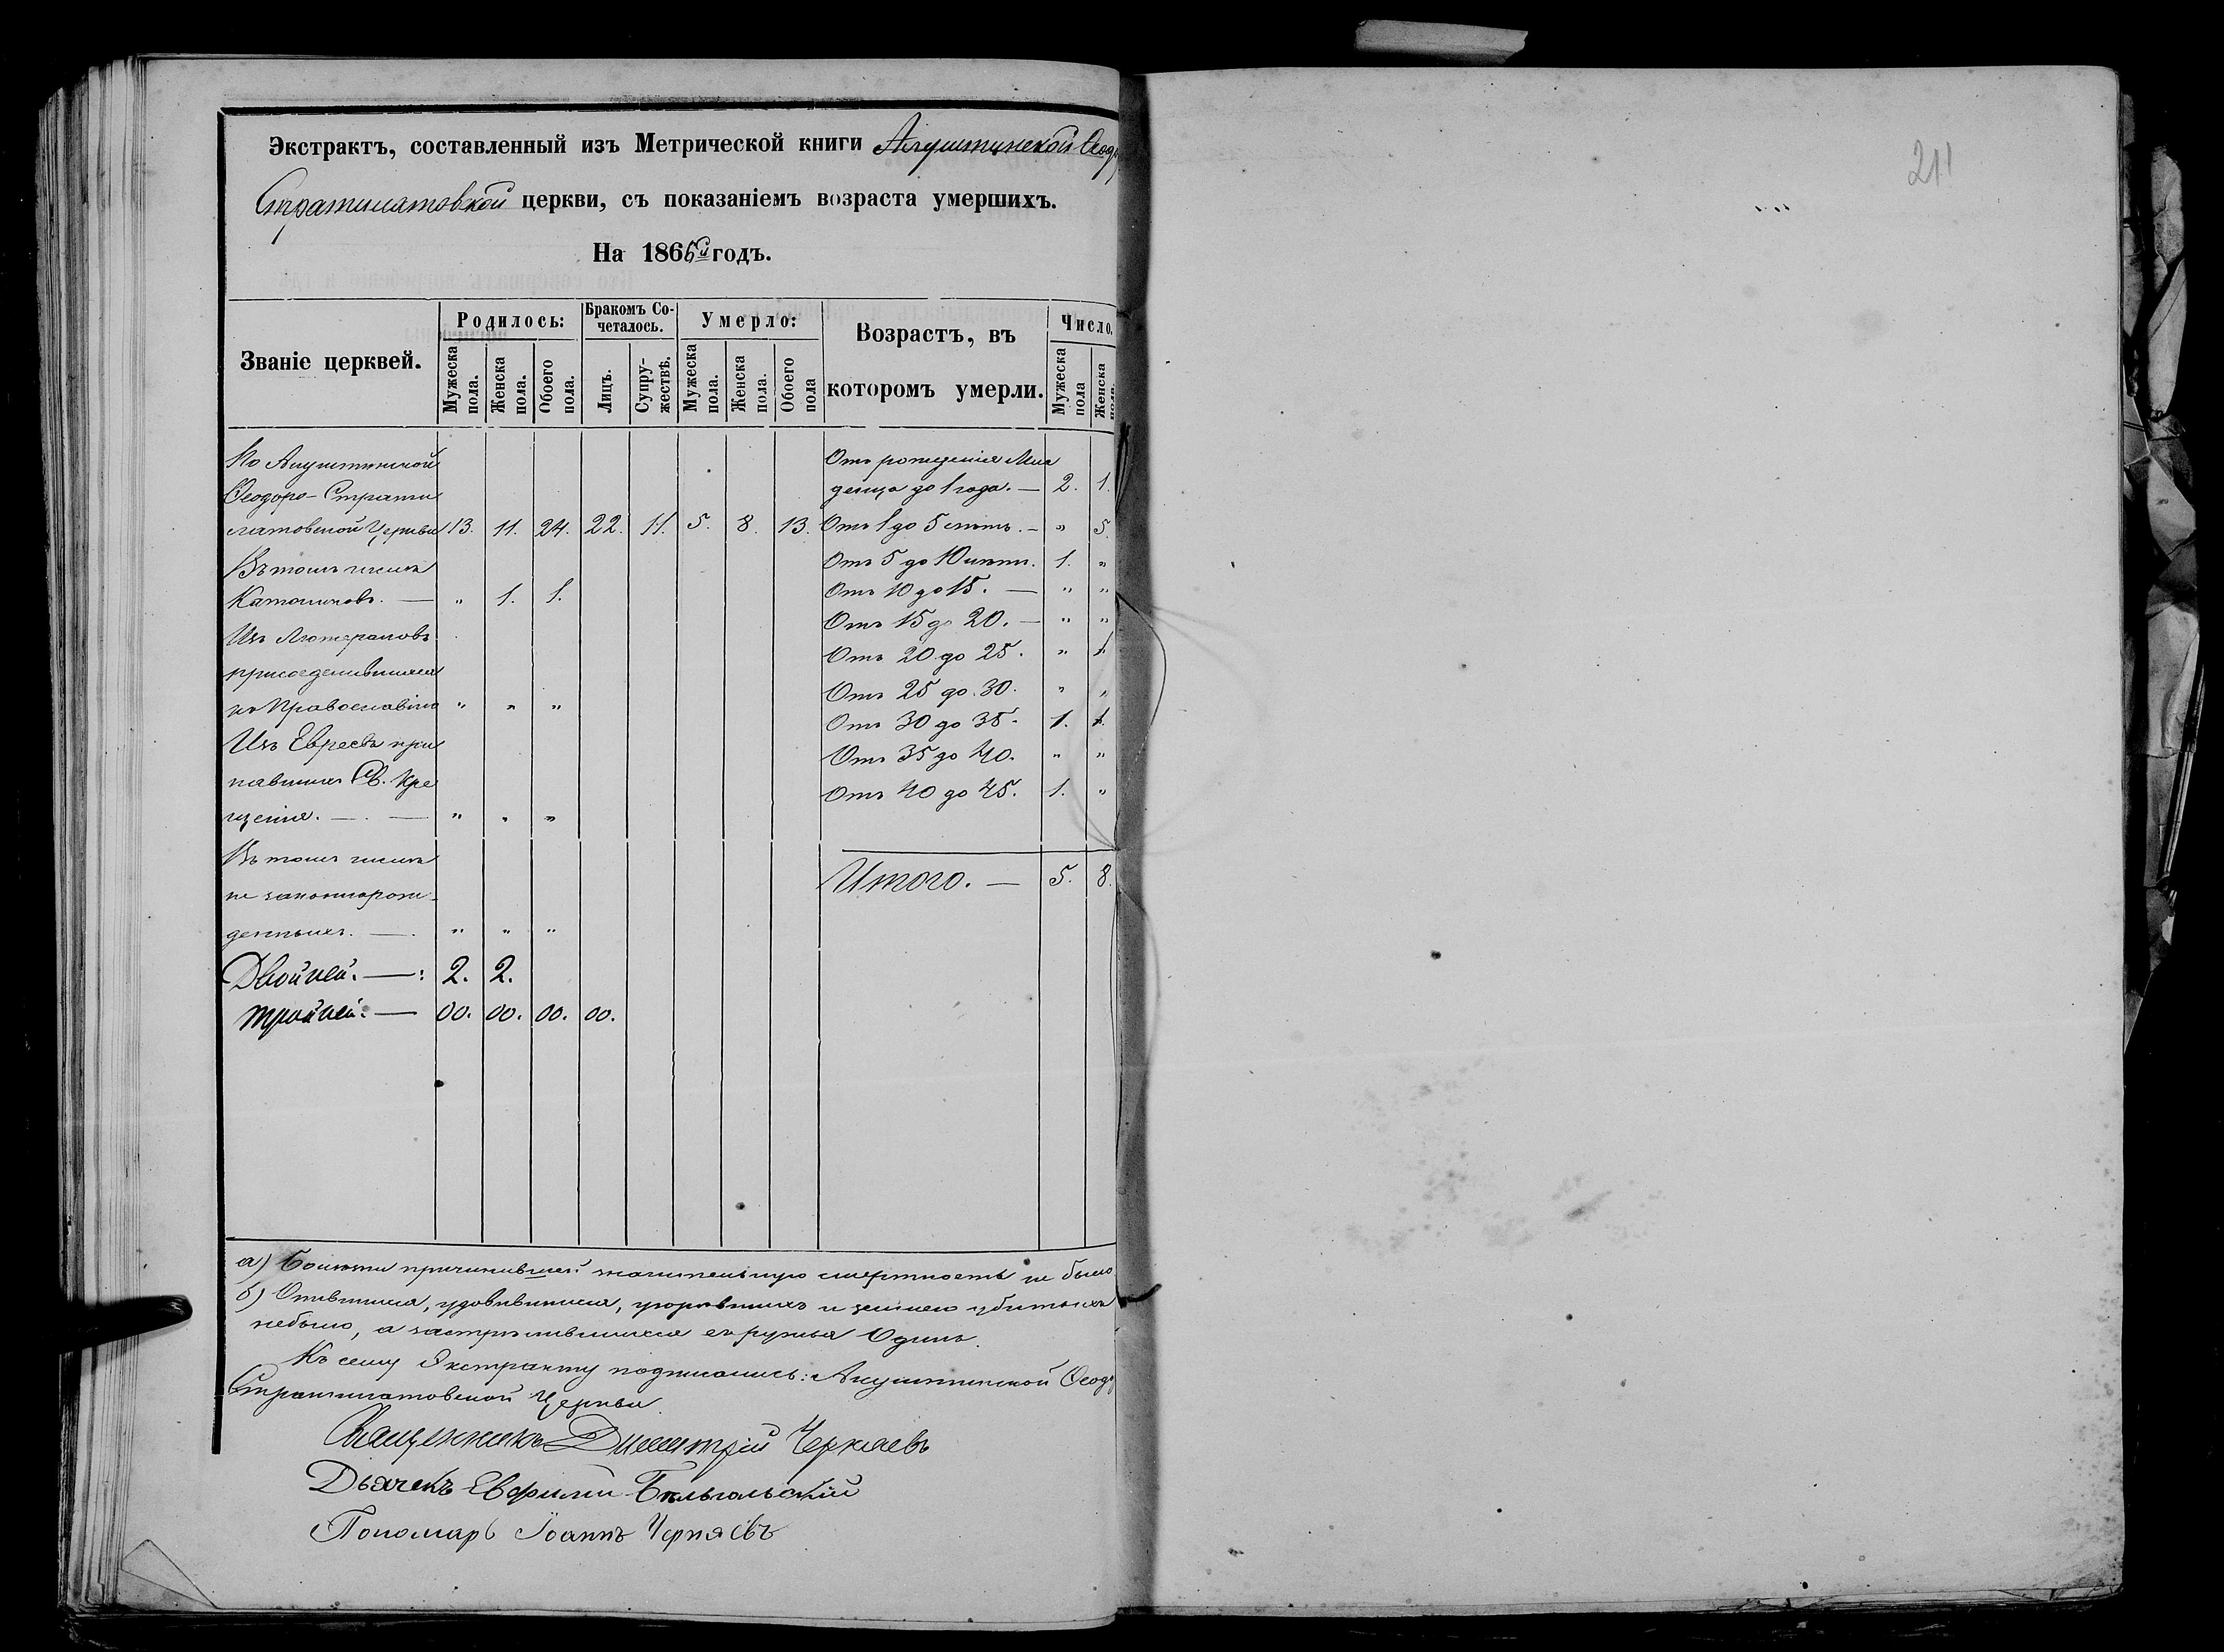 Экстрактъ, составленный изъ Метрической книги Алуштинской Ѳеод
Стратилатовской церкви, съ показаніемъ возраста умершихъ.
На 1865й годъ.
Званіе церквей.
Родилось: Бракомъ Со-четалось. Умерло: Возрастъ, въ которомъ умерли. Число.
Мужеска пола. Женска пола. Обоего пола. Лицъ. Супру-жествъ. Мужеска пола. Женска пола. Обоего пола Мужеска пола Женска пола.
По Алуштинской
Ѳеодоро-Страти
латовской Церкви 13. 11. 24. 22. 11. 5. 8. 13.
Въ томъ числѣ
Католиковъ. — " 1. 1.
Изъ Лютерановъ
присоединившихся
къ Православію " " "
Изъ Евреевъ при
нявшихъ Св. Кре
щеніе. — . — " " "
Въ томъ числѣ
не законнорож-
денныхъ. — . " " "
Двойней. — : 2. 2.
Тройней. — 00. 00. 00. 00.
Отъ рожденія Мла
денца до 1 года. — 2. 1.
Отъ 1 до 5 лѣтъ. — " 5.
Отъ 5 до 10 лѣтъ. 1. "
Отъ 10 до 15. — " "
Отъ 15 до 20. — " "
Отъ 20 до 25. " 1.
Отъ 25 до 30. " "
Отъ 30 до 35. 1. 1.
Отъ 35 до 40. " "
Отъ 40 до 45. 1. "
Итого. — 5. 8.
а) Болѣзни причинившей значительную смертность не было
б) Опившихся, удавившихся, угоревшихъ и землею убитыхъ
небыло, а застрѣлившихся съ ружья Одинъ.
Къ сему Экстракту подписались: Алуштинской Ѳеод
Стратилатовской Церкви
Священникъ Димитрій Черняевъ
Дьячекъ Евфимій
Пономарь Іоаннъ Черняевъ
211